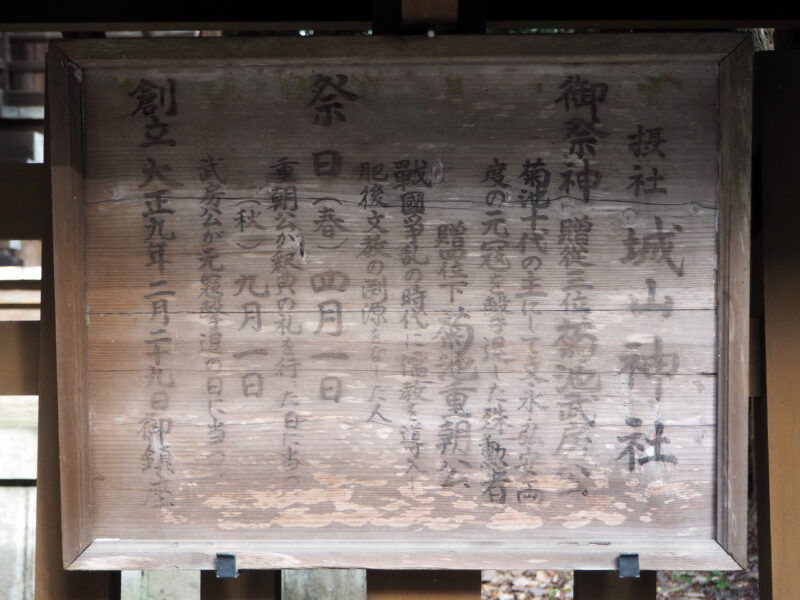 摂社 城山神社
御祭神 贈従三位菊池武房公。
菊池十代の主にして文永弘安両
度の元冦を撃退した殊勲者
贈四位下 菊池重朝公
戦國争乱の時代に儒教を導入
肥後文教の渕源をなした人
祭日(春)四月一日
重朝公が釈奠の礼を行った日に当つ
(秋)九月一日
武房公が元冦撃退の日に当
創立 大正九年二月二十九日御鎮